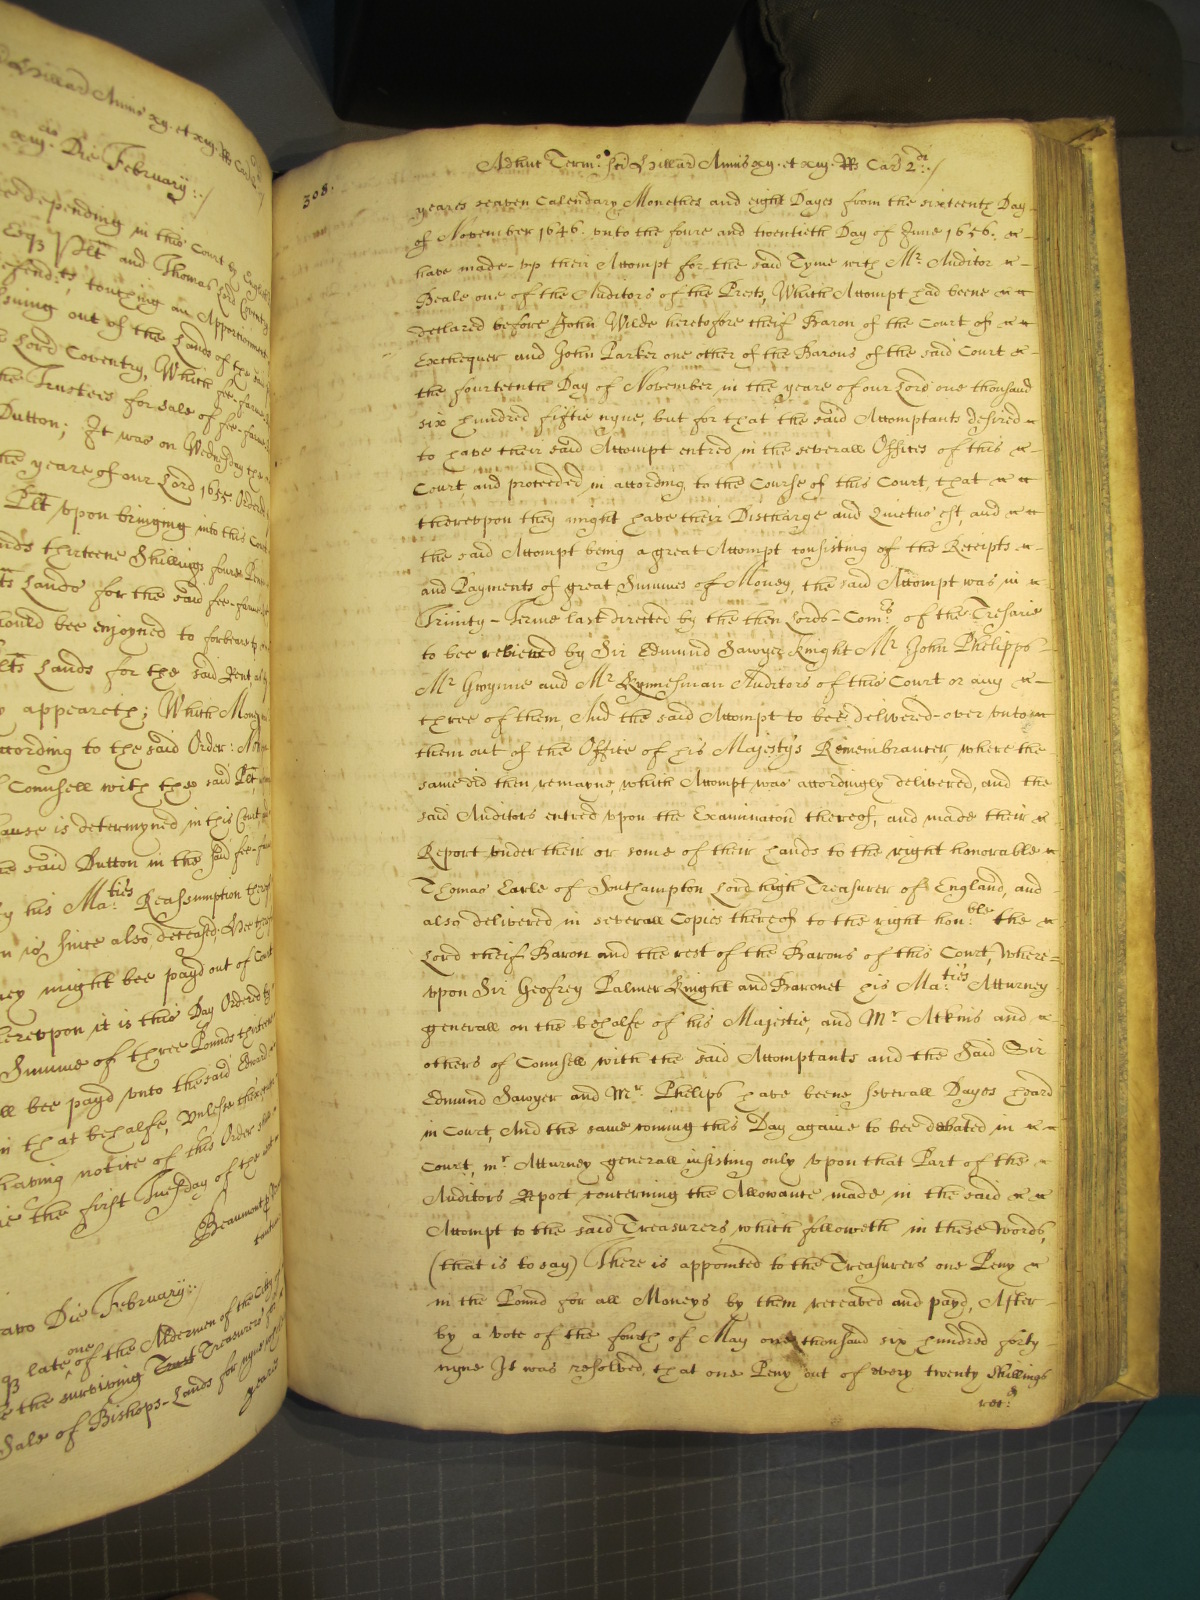 Hillarij Annis xij. et xiij. Rs Car
xiij. Die February:/
depending in this Court by English
Esqz Plt and Thomas Lord Coventry
Defendts, touching an Apportionment
issuing out of the Lands of the said
Lord Coventry, Which fee-farme
the Trustees for sale of fee-farme
Dutton; It was on Wednesday the
the yeare of our Lord 1655. Ordered
Plt upon bringing into this Court
thirteene Shillings foure Pence
Lands for the said fee-farme
should bee enjoyned to forbeare
Lands for the said Rent
appeareth; Which Money
according to the said Order: Now
Counsell with the said Plt
Cause is determyned in this Court
the said Dutton in the said fee-farme
by his Ma:ties Reassumption thereof
is since also deceased;
might bee payd out of Court
Whereupon it is this Day Ordered by
Summe of three Pounds thirteene
bee payd unto the said Edward
in that behalfe, Unlesse the
having notice of this Order
the first Tuesday of the
Beaumont p
Die February:/
late one of the Aldermen of the City
the surviving Trust Treasurers
Sale of Bishops-Lands for nyne
yeares
308.
Adhuc Term:o Scd Hillarij Annis xij. et xiij. Rs Car 2di:/
yeares seaven Calendary Monethes and eight Dayes from the sixteenth Day
of November 1646. unto the foure and twentieth Day of June 1656.
have made-up their Accompt for the said Tyme with Mr. Auditor
Beale one of the Auditors of the Prests, Which Accompt had beene
declared before John Wilde heretofore cheif Baron of the Court of
Exchequer and John Parker one other of the Barons of the said Court
the fourteenth Day of November in the yeare of our Lord one thousand
six hundred fiftie nyne, but for that the said Accomptants desired
to have their said Accompt entred in the severall Offices of this
Court and proceeded in according to the Course of this Court, that
thereupon they might have their Discharge and Quietus est, and
the said Accompt being a great Accompt consisting of the Receipts
and Payments of great Summes of Money, the said Accompt was in
Trinity-Terme last directed by the then Lords-Com:rs of the Tresurie
to bee reviewed by Sir Edmund Sawyer Knight Mr John Phelipps
Mr Gwynne and Mr Kynnesman Auditors of this Court or any
three of them And the said Accompt to bee delivered-over unto
them out of the Office of his Majestys Remembrancer, where the
same did then remayne, which Accompt was accordingly delivered, and the
said Auditors entred upon the Examinacon thereof, and made their
Report under their or some of their hands to the right honorable
Thomas Earle of Southampton Lord high Treasurer of England, and
also delivered in severall Copies thereof to the right hon:ble the
Lord cheif Baron and the rest of the Barons of this Court, Where=
upon Sir Geofrey Palmer Knight and Baronet his Ma:ties Atturney
generall on the behalfe of his Majestie, and Mr. Atkins and
others of Counsell with the said Accomptants and the Said Sir
Edmund Sawyer and Mr. Phelips have beene severall Dayes heard
in Court, And the same coming this Day againe to bee debated in
Court, mr. Atturney generall insisting only upon that Part of the
Auditors Report concerning the Allowance made in the said
Accompt to the said Treasurers, which followeth in these Words,
(that is to say) There is appointed to the Treasurers one Peny
in the Pound for all Moneys by them receaved and payd, After
by a Vote of the fourth of May one thousand six hundred forty
nyne It was resolved, that one Peny out of every twenty Shillings
rec:d